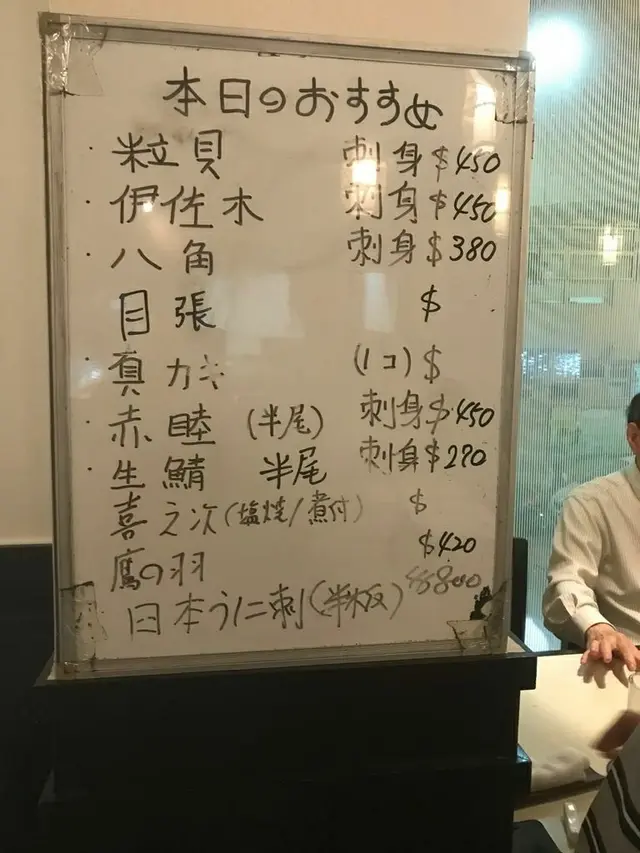 本日のおすすめ
・粒貝 刺身$450
・伊佐木 刺身$450
・八角 刺身$380
目張 $
・真カキ (1コ)$
・赤睦(半尾) 刺身$450
・生鯖 半尾 刺身$270
喜之次(塩焼/煮付) $
鷹の羽 $420
日本うに刺(半板) $800